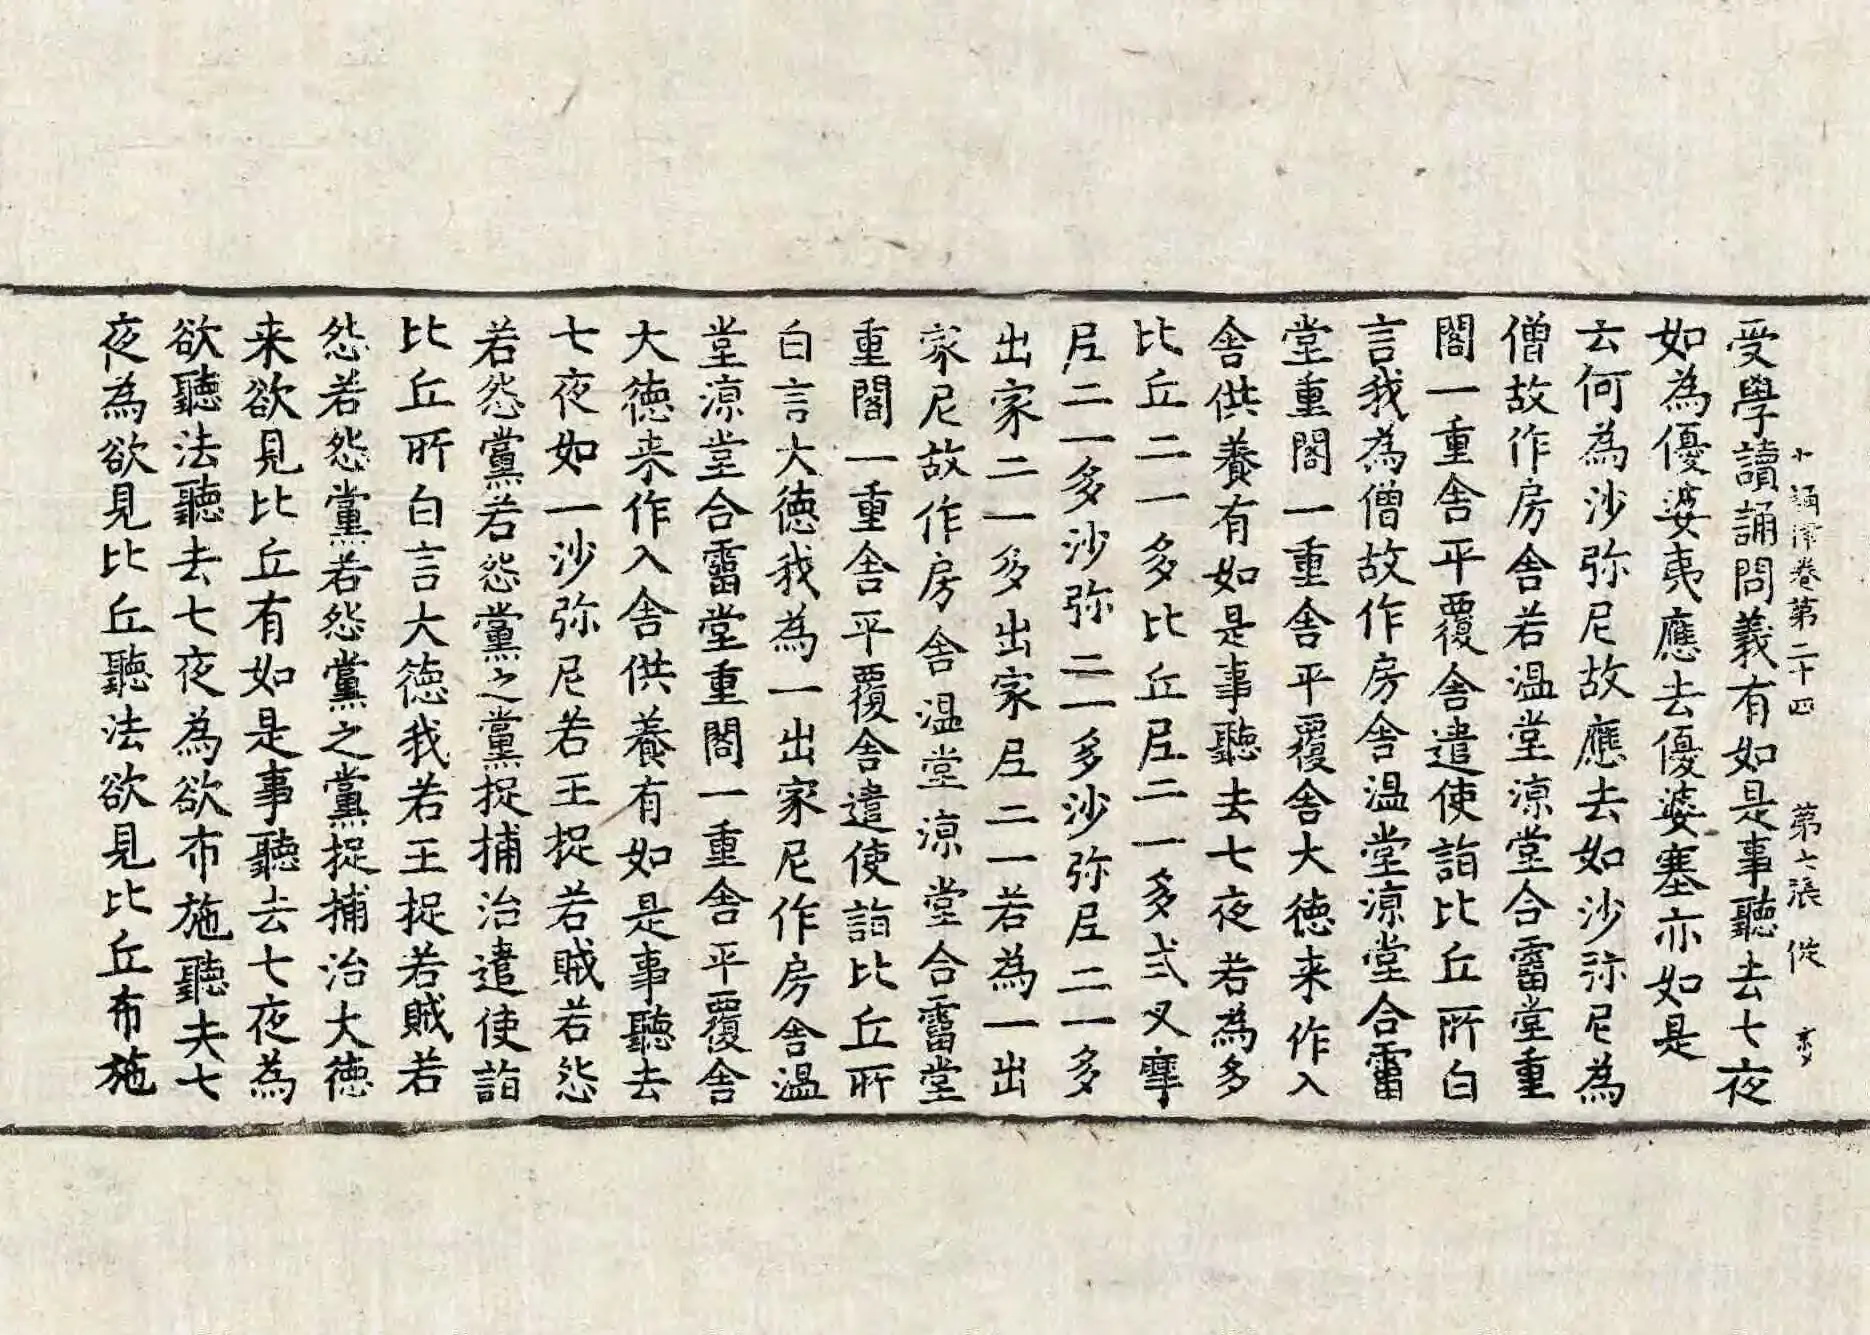 十誦律卷第二十四 第六張 從
受學讀誦問義有如是事聽去七夜
如為優婆夷應去優婆塞亦如是
云何為沙弥尼故應去如沙弥尼為
僧故作房舍若温堂凉堂合霤堂重
閣一重舍平覆舍遣使詣比丘所白
言我為僧故作房舍温堂凉堂合霤
堂重閣一重舍平覆舍大德来作入
舍供養有如是事聽去七夜若為多
比丘二一多比丘尼二一多式叉摩
尼二一多沙弥二一多沙弥尼二一多
出家二一多出家尼二一若為一出
家尼故作房舍温堂凉堂合霤堂
重閣一重舍平覆舍遣使詣比丘所
白言大德我為一出家尼作房舍温
堂凉堂合霤堂重閣一重舍平覆舍
大德来作入舍供養有如是事聽去
七夜如一沙弥尼若王捉若賊若怨
若怨黨若怨黨之黨捉捕治遣使詣
比丘所白言大德我若王捉若賊若
怨若怨黨若怨黨之黨捉捕治大德
来欲見比丘有如是事聽去七夜為
欲聽法聽去七夜為欲布施聽去七
夜為欲見比丘聽法欲見比丘布施